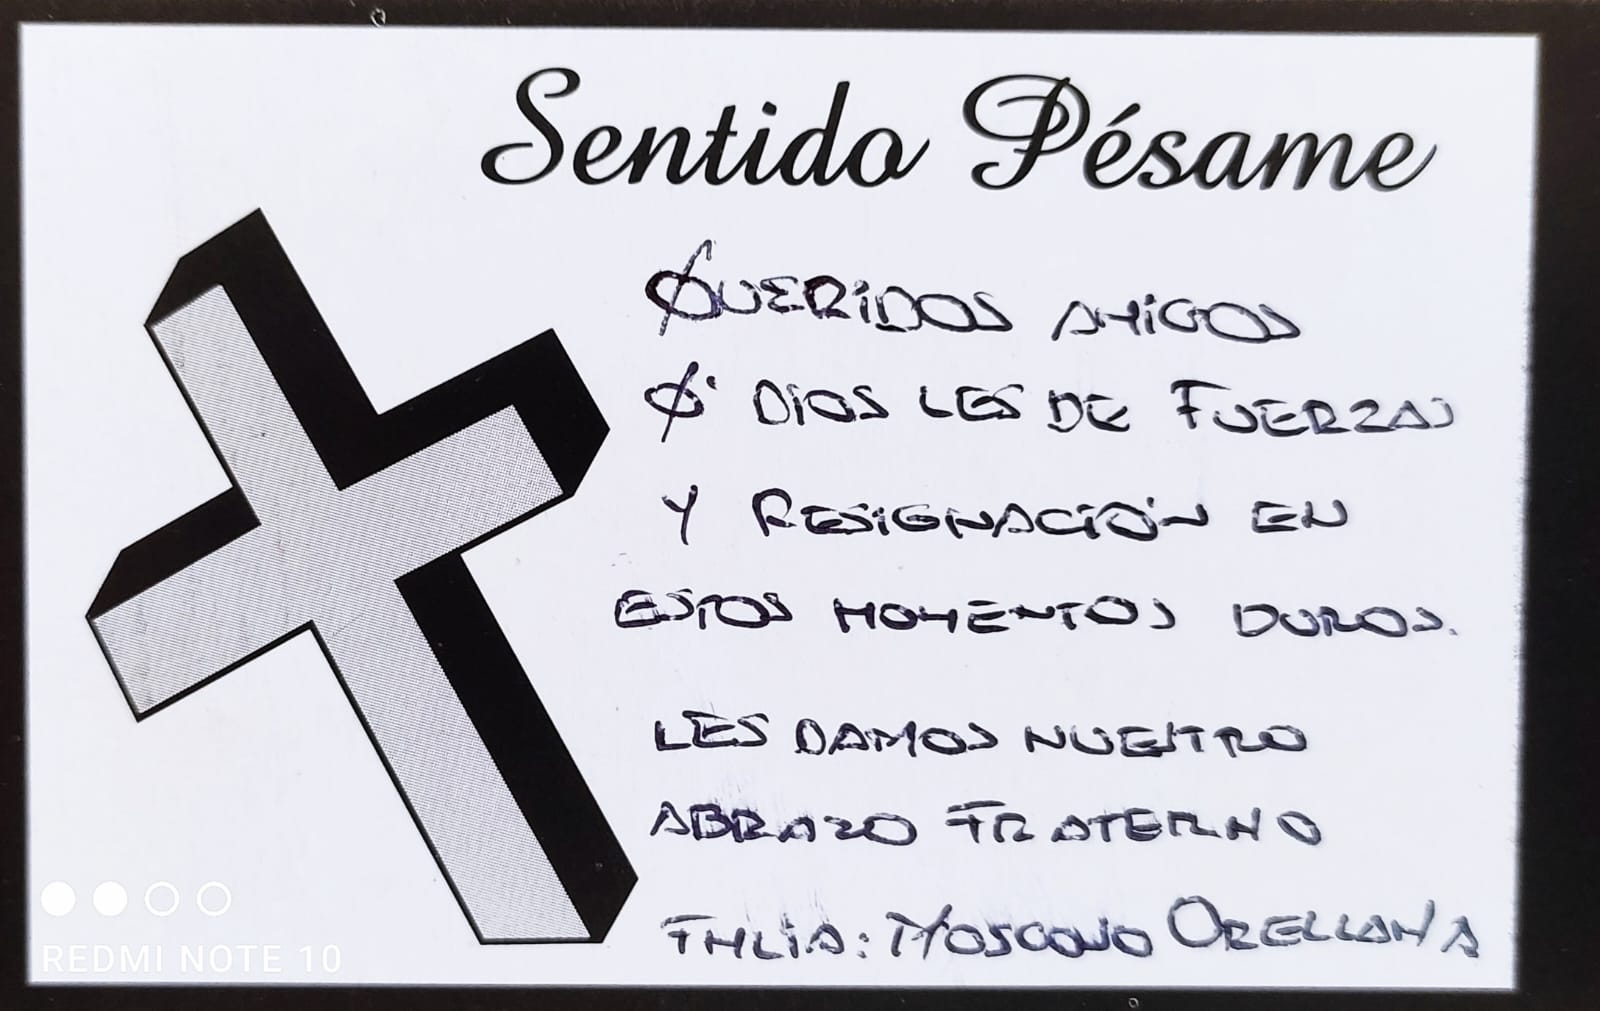 Sentido Pésame
QUERIDOS AMIGOS
Q' DIOS LES DE FUERZAS
Y RESIGNACIÓN EN
ESTOS MOMENTOS DUROS.
LES DAMOS NUESTRO
ABRAZO FRATERNO
FMLIA: MOSCOSO ORELLANA
REDMI NOTE 10